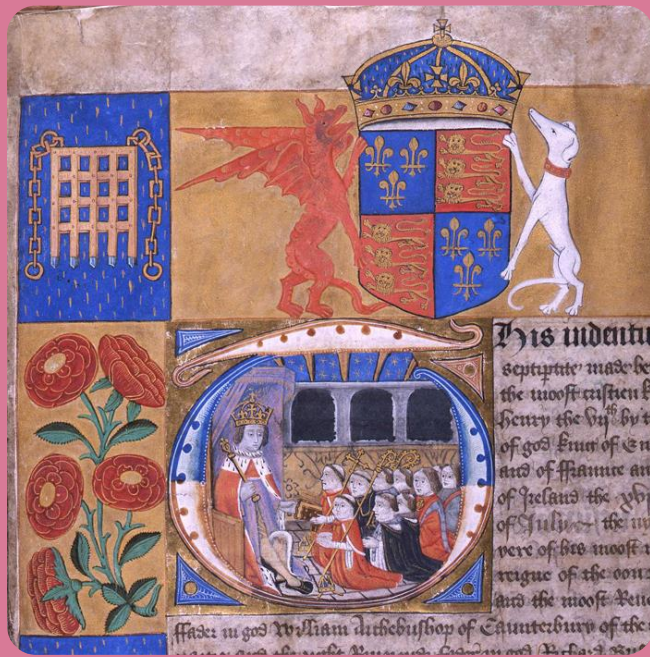 This indentu
septiptite made be
the moost cristien k
henry the vijth by t
of god king of En
and of ffrance an
of Ireland the xvj
of July the
yere of his moost
reigne of the
and the moost Reue
ffader in god William Archebusshop of Caunterbury of the
god Richard